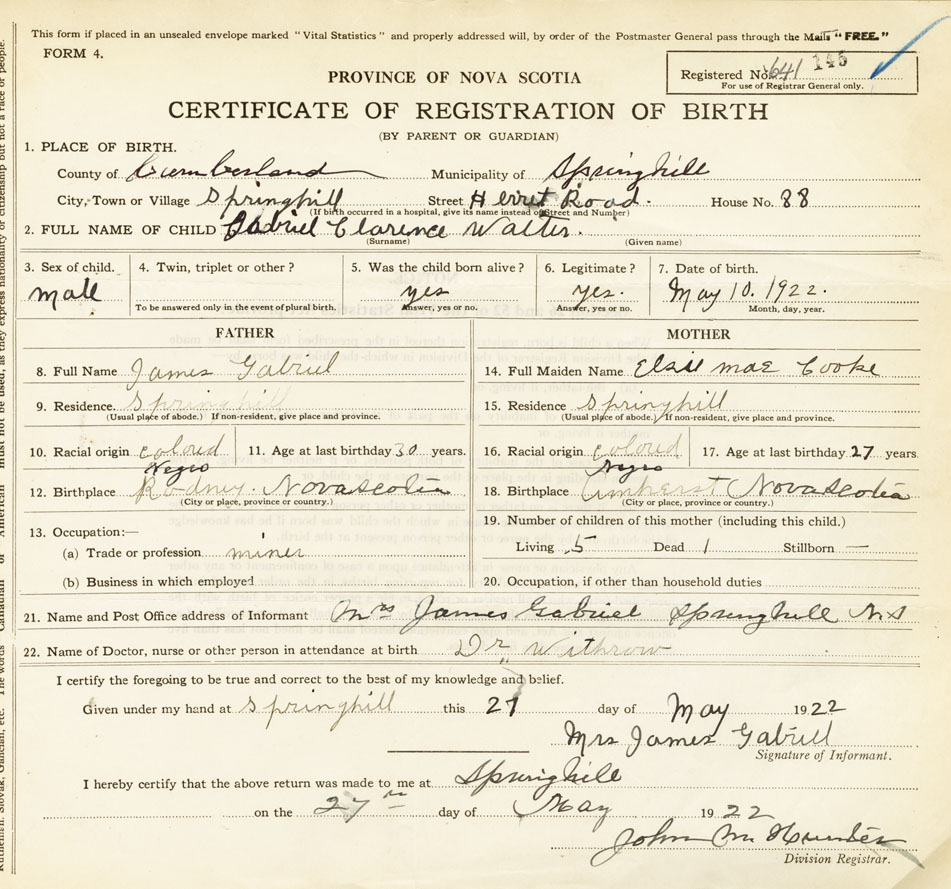 This form if placed in an unsealed envelope marked "Vital Statistics" and properly addressed will, by order of the Postmaster General pass through the Mails "FREE."
FORM 4.
Registered No. 641 145
For use of Registrar General only.
PROVINCE OF NOVA SCOTIA
CERTIFICATE OF REGISTRATION OF BIRTH
(BY PARENT OR GUARDIAN)
1. PLACE OF BIRTH.
County of Cumberland Municipality of Springhill
City, Town or Village Springhill Street Herret Road. House No. 88
(If birth occurred in a hospital, give its name instead of Street and Number)
2. FULL NAME OF CHILD Gabriel Clarence Walter.
(Surname) (Given name)
3. Sex of child. 4. Twin, triplet or other? 5. Was the child born alive? 6. Legitimate? 7. Date of birth.
male yes yes. May 10. 1922.
To be answered only in the event of plural birth. Answer, yes or no. Answer, yes or no. Month, day, year.
FATHER MOTHER
8. Full Name James Gabriel 14. Full Maiden Name Elsie mae Cooke
9. Residence. Springhill 15. Residence Springhill
(Usual place of abode.) If non-resident, give place and province. (Usual place of abode.) If non-resident, give place and province.
10. Racial origin colored 11. Age at last birthday 30 years. 16. Racial origin colored 17. Age at last birthday 27 years
Negro Negro
12. Birthplace Rodney. Novascotia 18. Birthplace Amherst Novascotia
(City or place, province or country.) (City or place, province or country.)
13. Occupation:— 19. Number of children of this mother (including this child.)
(a) Trade or profession miner Living 5 Dead 1 Stillborn —
(b) Business in which employed 20. Occupation, if other than household duties
21. Name and Post Office address of Informant Mrs James Gabriel Springhill N.S
22. Name of Doctor, nurse or other person in attendance at birth Dr Withrow
I certify the foregoing to be true and correct to the best of my knowledge and belief.
Given under my hand at Springhill this 27 day of May 1922
Mrs James Gabriel
Signature of Informant.
I hereby certify that the above return was made to me at Springhill
on the 27th day of May 1922
John M Hunter
Division Registrar.